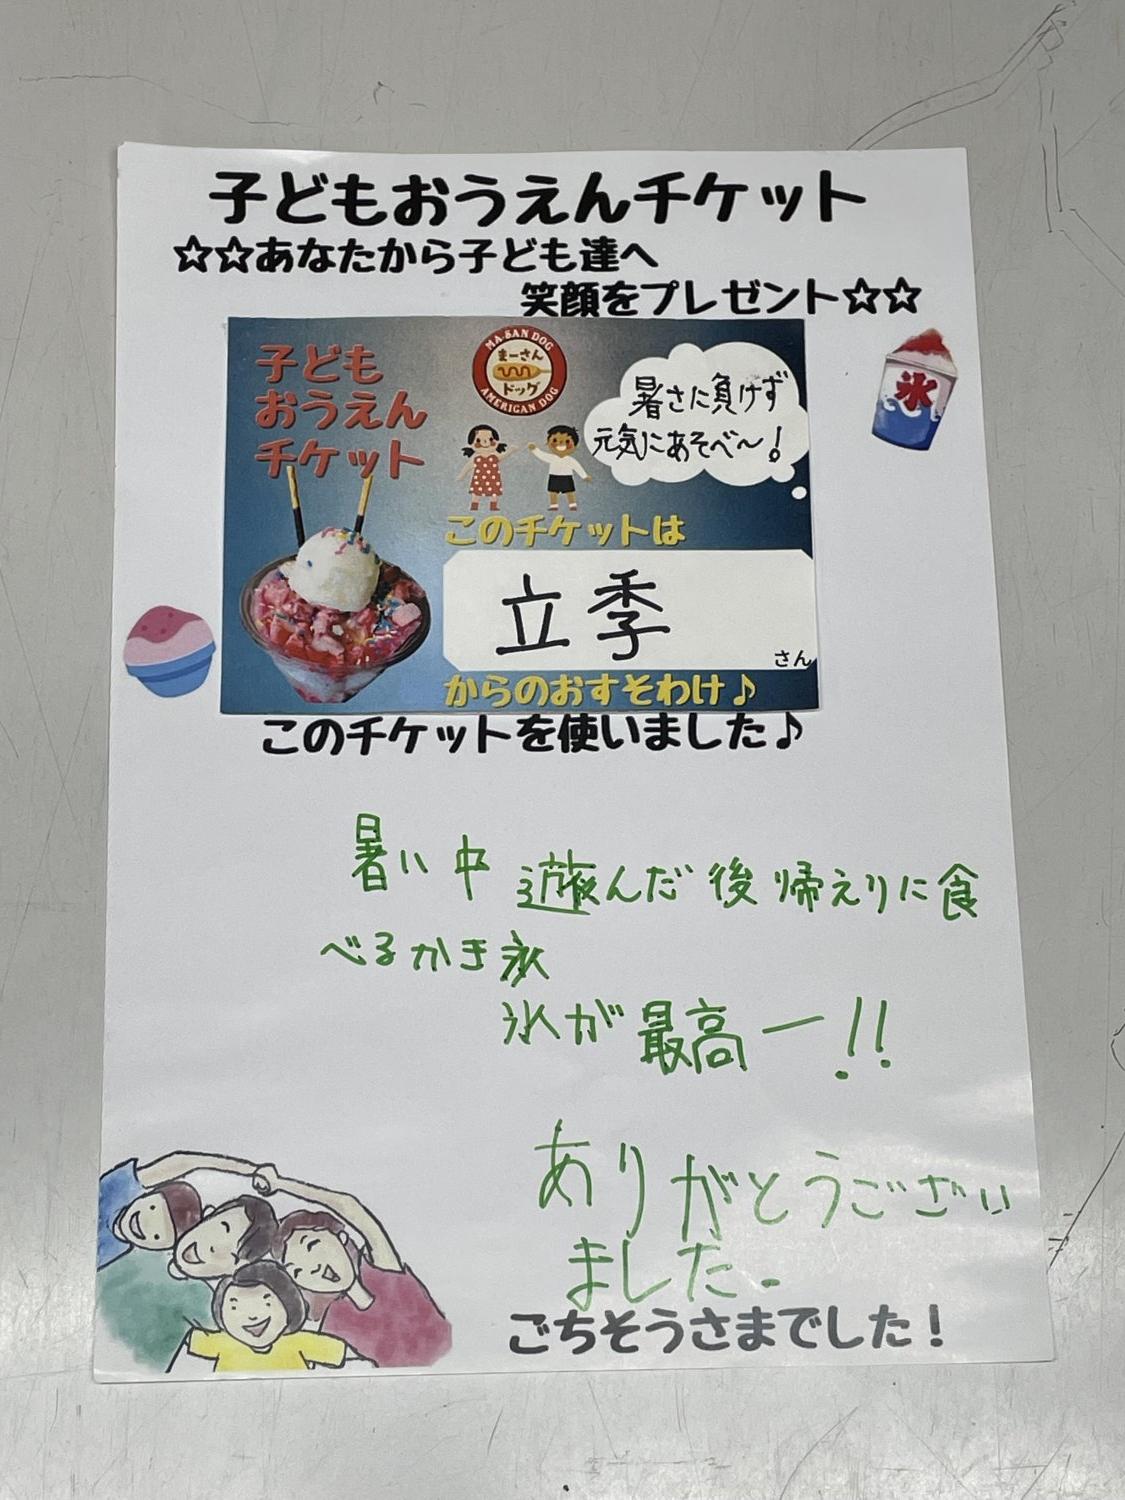 子どもおうえんチケット
☆☆あなたから子ども達へ
笑顔をプレゼント☆☆
子ども
おうえん
チケット
MA-SAN DOG
まーさん
ドッグ
AMERICAN DOG
暑さに負けず
元気にあそべ〜!
氷
このチケットは
立季
さん
からのおすそわけ♪
このチケットを使いました♪
暑い中 遊んだ後帰えりに食
べるかき氷
氷が最高ー!!
ありがとうござい
ました。
ごちそうさまでした!